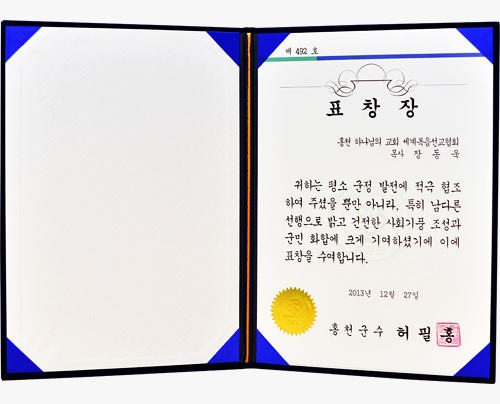 제 492 호
표창장
홍천 하나님의 교회 세계복음선교협회
목사 장동욱
귀하는 평소 군정 발전에 적극 협조
하여 주셨을 뿐만 아니라, 특히 남다른
선행으로 밝고 건전한 사회기풍 조성과
군민 화합에 크게 기여하셨기에 이에
표창을 수여합니다.
2013년 12월 27일
홍천군수 허필홍